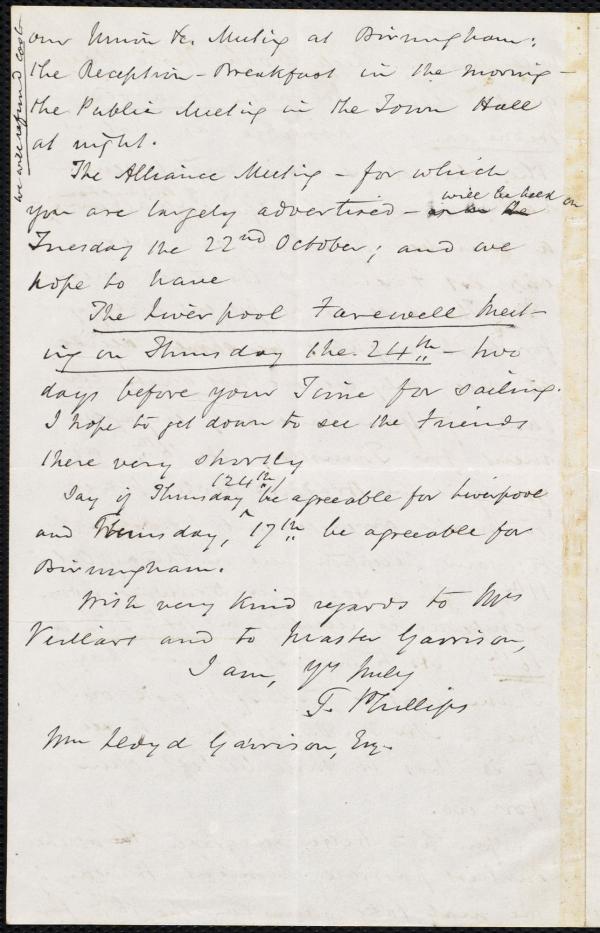 our Union &c. Meeting at Birmingham:
the Reception-Breakfast in the morning –
the Public Meeting in the Town Hall
at night.
The Alliance Meeting – for which
you are largely advertised – will be held on
Tuesday the 22nd October; and we
hope to have
The Liverpool Farewell Meet-
ing on Thursday the 24th – two
days before your Time for sailing.
I hope to get down to see the Friends
there very shortly
Say if Thursday (24th) be agreeable for Liverpool
and Thursday, 17th be agreeable for
Birmingham.
With very kind regards to Mrs
and to Master Garrison,
I am, Yrs truly
F. Phillips
Wm Lloyd Garrison, Esq.
we will refund cost